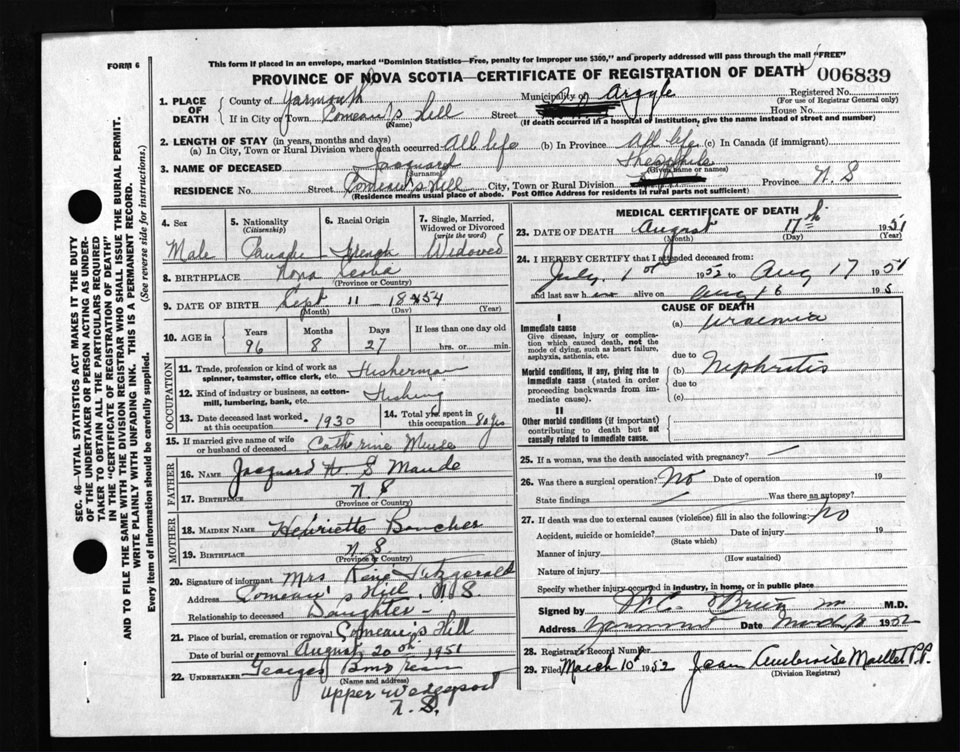 FORM 6
This form if placed in an envelope, marked "Dominion Statistics—Free, penalty for improper use $300," and properly addressed will pass through the mail "FREE"
PROVINCE OF NOVA SCOTIA—CERTIFICATE OF REGISTRATION OF DEATH 006839
1. PLACE OF DEATH
County of Yarmouth Municipality of Argyle Registered No.
(For use of Registrar General only)
If in City or Town Comeau's Hill Street House No.
(Name) (If death occurred in a hospital or institution, give the name instead of street and number)
2. LENGTH OF STAY (in years, months and days)
(a) In City, Town or Rural Division where death occurred All life (b) In Province All life (c) In Canada (if immigrant)
3. NAME OF DECEASED Jacquard Theophile
(Surname) (Given name or names)
RESIDENCE No. Street Comeau's Hill City, Town or Rural Division Province N. S
(Residence means usual place of abode. Post Office Address for residents in rural parts not sufficient)
4. Sex
Male
5. Nationality
(Citizenship)
6. Racial Origin
French
7. Single, Married, Widowed or Divorced
(write the word)
Widowed
8. BIRTHPLACE Nova Scotia
(Province or Country)
9. DATE OF BIRTH Sept 11 - 1854
(Month) (Day) (Year)
10. AGE in
Years Months Days If less than one day old
96 8 27 hrs. or min.
OCCUPATION
11. Trade, profession or kind of work as spinner, teamster, office clerk, etc. Fisherman
12. Kind of industry or business, as cotton-mill, lumbering, bank, etc. Fishing
13. Date deceased last worked at this occupation 1930
14. Total yrs. spent in this occupation 80 yrs
15. If married give name of wife or husband of deceased Catherine Muise
FATHER
16. Name Jacquard
17. Birthplace N. S
(Province or Country)
MOTHER
18. MAIDEN NAME Henriette Boucher
19. BIRTHPLACE N. S
(Province or Country)
20. Signature of informant Mrs Fitzgerald
Address Comeau's Hill, N. S.
Relationship to deceased Daughter -
21. Place of burial, cremation or removal Comeau's Hill
Date of burial or removal August 20th 1951
22. UNDERTAKER
(Name and address)
Upper Wedgeport
N. S.
MEDICAL CERTIFICATE OF DEATH
23. DATE OF DEATH August 17th 1951
(Month) (Day) (Year)
24. I HEREBY CERTIFY that I attended deceased from:
July 1st 1952 to Aug 17 1951
and last saw h alive on Aug 16 195
CAUSE OF DEATH
I
Immediate cause
Give disease, injury or complication which caused death, not the mode of dying, such as heart failure, asphyxia, asthenia, etc.
(a) Uraemia
due to
Morbid conditions, if any, giving rise to immediate cause (stated in order proceeding backwards from immediate cause).
(b) Nephritis
due to
(c)
II
Other morbid conditions (if important) contributing to death but not causally related to immediate cause.
25. If a woman, was the death associated with pregnancy?
26. Was there a surgical operation? No Date of operation 19
State findings Was there an autopsy?
27. If death was due to external causes (violence) fill in also the following: No
Accident, suicide or homicide? Date of injury 19
(State which)
Manner of injury
(How sustained)
Nature of injury
Specify whether injury occurred in industry, in home, or in public place
Signed by O'Brien M.D.
Address Date March 1952
28. Registrar's Record Number
29. Filed March 10th 1952 Jean Ambroise Maillet P.P.
(Division Registrar)
SEC. 46—VITAL STATISTICS ACT MAKES IT THE DUTY
OF THE UNDERTAKER OR PERSON ACTING AS UNDER-
TAKER TO OBTAIN ALL THE PARTICULARS REQUIRED
IN THE "CERTIFICATE OF REGISTRATION OF DEATH"
AND TO FILE THE SAME WITH THE DIVISION REGISTRAR WHO SHALL ISSUE THE BURIAL PERMIT.
WRITE PLAINLY WITH UNFADING INK. THIS IS A PERMANENT RECORD.
Every item of information should be carefully supplied. (See reverse side for instructions.)